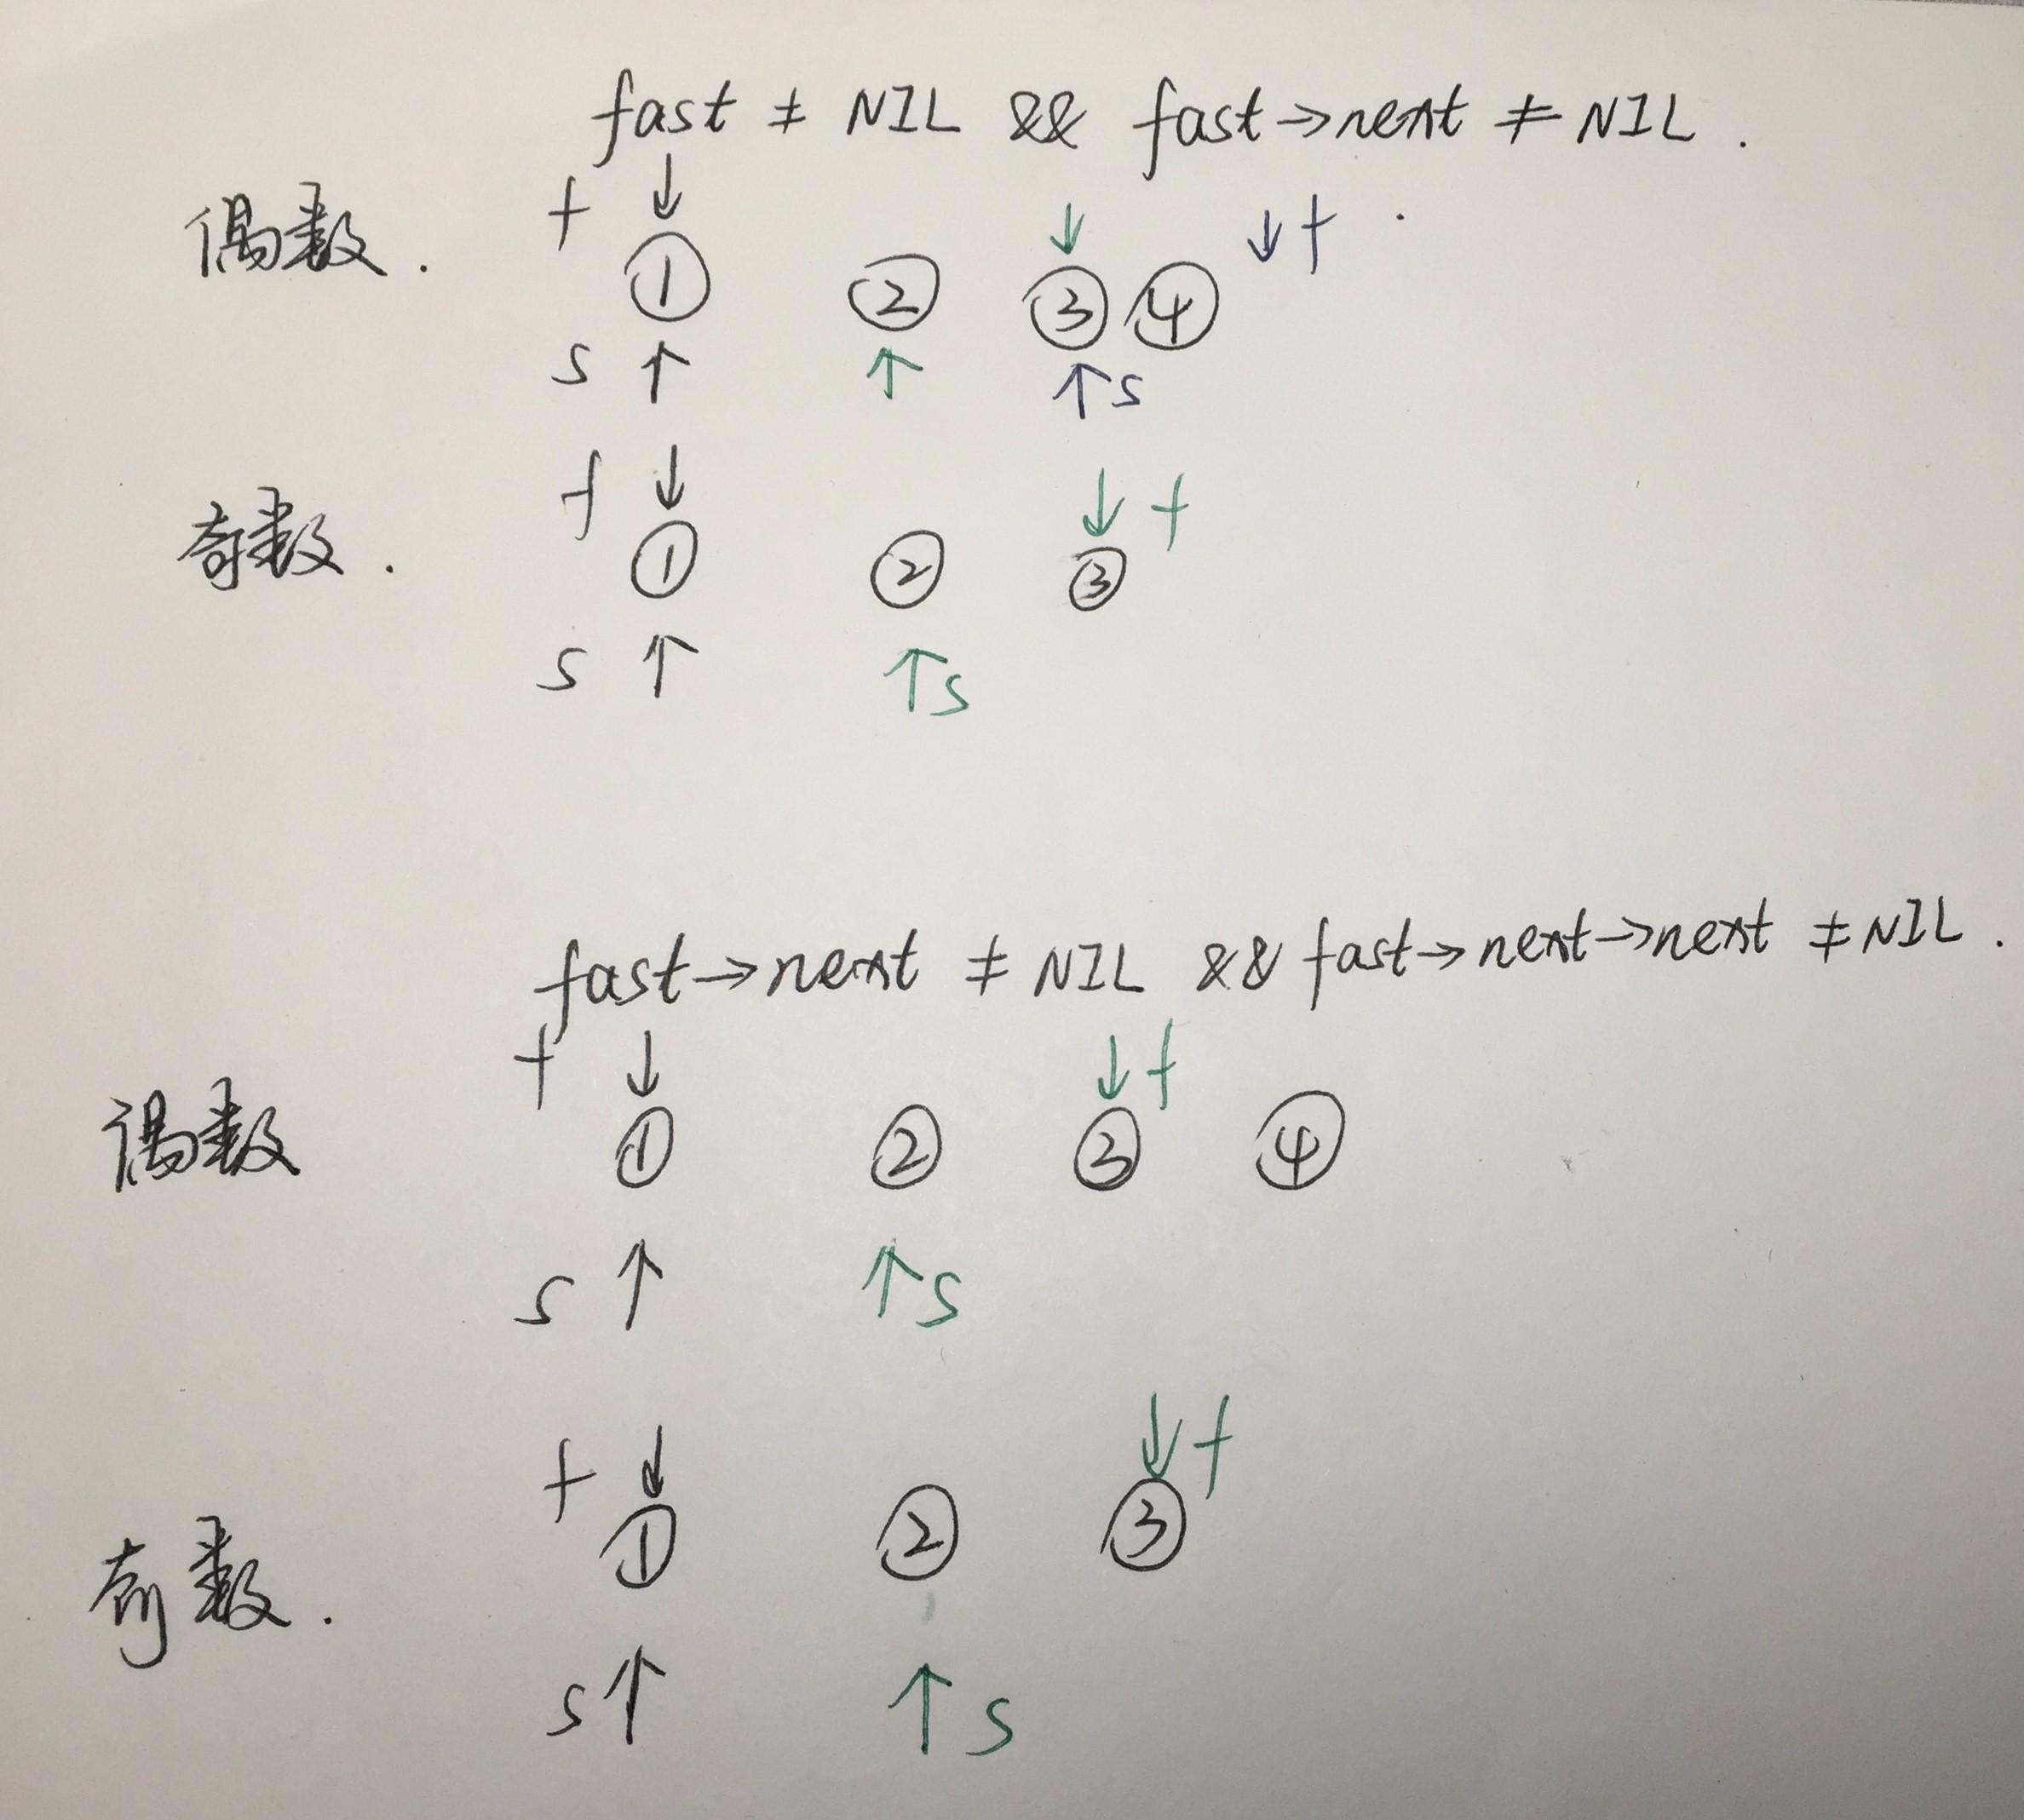 fast ≠ NIL && fast→next ≠ NIL.
f ↓ ↓ ↓f
偶数. ① ② ③ ④
s ↑ ↑ ↑s
f ↓ ↓f
奇数. ① ② ③
s ↑ ↑s
fast→next ≠ NIL && fast→next→next ≠ NIL.
f ↓ ↓f
偶数 ① ② ③ ④
s ↑ ↑s
f ↓ ↓f
奇数. ① ② ③
s ↑ ↑s